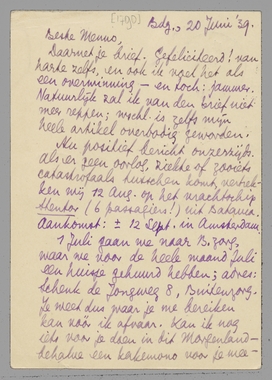 [1790]
Bdg., 20 Juni '39.
Beste Menno,
Daarnet je brief. Gefeliciteerd! van
harte zelfs, en ook ik voel het als
een overwinning — en toch: jammer.
Natuurlijk zal ik van den brief niet
meer reppen; wschl. is zelfs mijn
heele artikel overbodig geworden.
Nu positief bericht onzerzijds:
als er geen oorlog, ziekte of zooiets
catastrofaals tusschen komt, vertrek-
ken wij 12 Aug. op het vrachtschip
Stentor (6 passagiers!) uit Batavia.
Aankomst: ± 12 Sept. in Amsterdam.
1 Juli gaan we naar B.zorg,
waar we voor de heele maand Juli
een huisje gehuurd hebben; adres:
Schenk de Jongweg 8, Buitenzorg.
Je weet dus waar je me bereiken
kan vóór ik afvaar. Kan ik nog
iets voor je doen in dit Morgenland —
behalve een kakemono voor je mee-